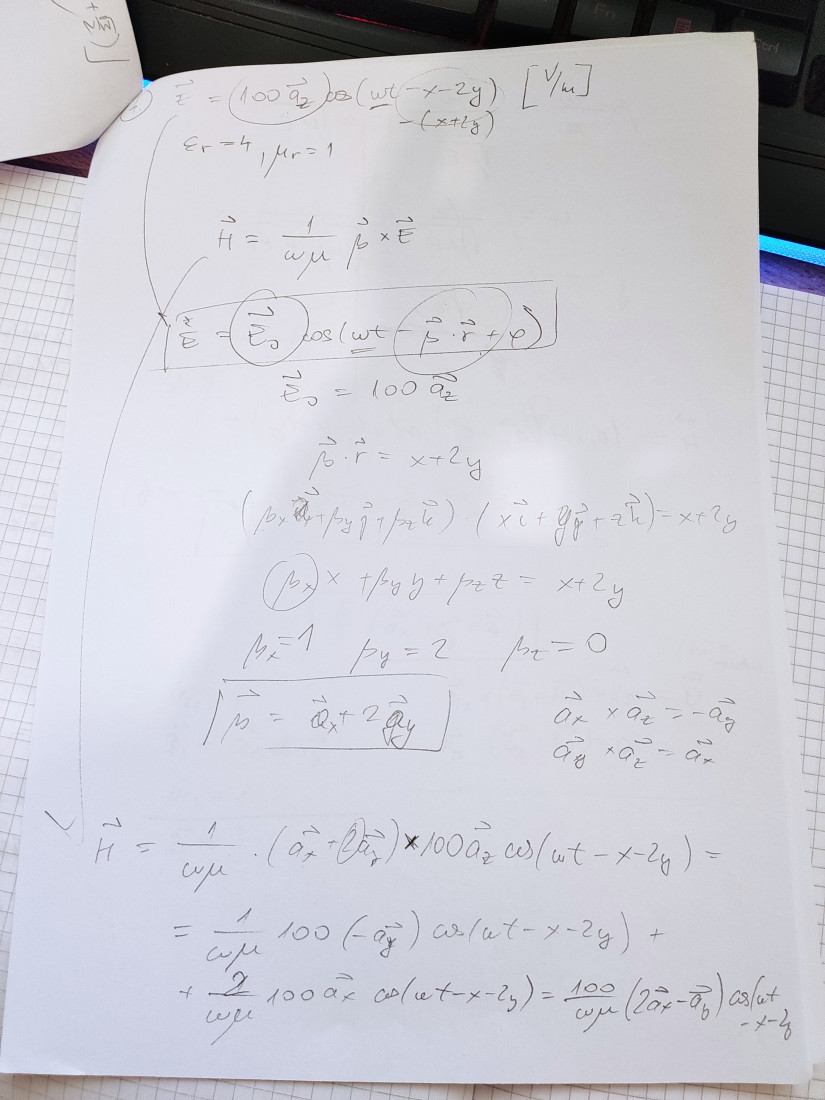 E⃗ = (100 a⃗z) cos(ωt - x - 2y) [V/m]
- (x+2y)
εr = 4, μr = 1
H⃗ = 1/ωμ β⃗ × E⃗
E⃗ = E⃗₀ cos(ωt - β⃗·r⃗ + φ)
E⃗₀ = 100 a⃗z
β⃗·r⃗ = x+2y
(βx i⃗ + βy j⃗ + βz k⃗)·(x i⃗ + y j⃗ + z k⃗) = x+2y
βx x + βy y + βz z = x+2y
βx = 1 βy = 2 βz = 0
β⃗ = a⃗x + 2 a⃗y
a⃗x × a⃗z = -a⃗y
a⃗y × a⃗z = a⃗x
H⃗ = 1/ωμ · (a⃗x + 2a⃗y) × 100 a⃗z cos(ωt - x - 2y) =
= 1/ωμ 100 (-a⃗y) cos(ωt - x - 2y) +
+ 2/ωμ 100 a⃗x cos(ωt - x - 2y) = 100/ωμ (2a⃗x - a⃗y) cos(ωt
- x - 2y